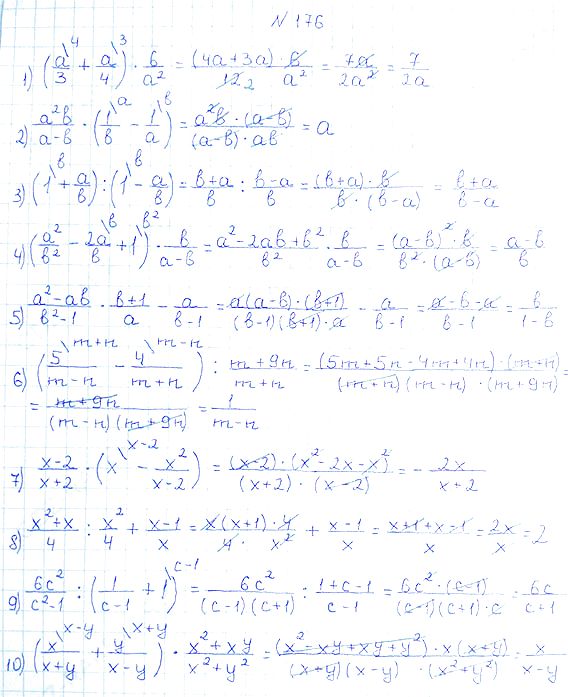 N 176
1) (a\4/3 + a\3/4) · 6/a² = (4a+3a) · 6/12 2 a² = 7a/2a² = 7/2a
2) a²b/a-b · (1\a/b - 1\b/a) = a²b · (a-b)/(a-b) · ab = a
3) (1\b + a/b) : (1\b - a/b) = b+a/b : b-a/b = (b+a) · b/b · (b-a) = b+a/b-a
4) (a²/b² - 2a\b/b + 1\b²) · b/a-b = a²-2ab+b²/b² · b/a-b = (a-b)² · b/b² · (a-b) = a-b/b
5) a²-ab/b²-1 · b+1/a - a/b-1 = a(a-b) · (b+1)/(b-1)(b+1) · a - a/b-1 = a-b-a/b-1 = b/1-b
6) (5\m+n/m-n - 4\m-n/m+n) : m+9n/m+n = (5m+5n-4m+4n) · (m+n)/(m+n)(m-n) · (m+9n) =
= m+9n/(m-n)(m+9n) = 1/m-n
7) x-2/x+2 · (x\x-2 - x²/x-2) = (x-2) · (x²-2x-x²)/(x+2) · (x-2) = - 2x/x+2
8) x²+x/4 : x²/4 + x-1/x = x(x+1) · 4/4 · x² + x-1/x = x+1+x-1/x = 2x/x = 2
9) 6c²/c²-1 : (1/c-1 + 1\c-1) = 6c²/(c-1)(c+1) : 1+c-1/c-1 = 6c² · (c-1)/(c-1)(c+1) · c = 6c/c+1
10) (x\x-y/x+y + y\x+y/x-y) · x²+xy/x²+y² = (x²-xy+xy+y²) · x(x+y)/(x+y)(x-y) · (x²+y²) = x/x-y